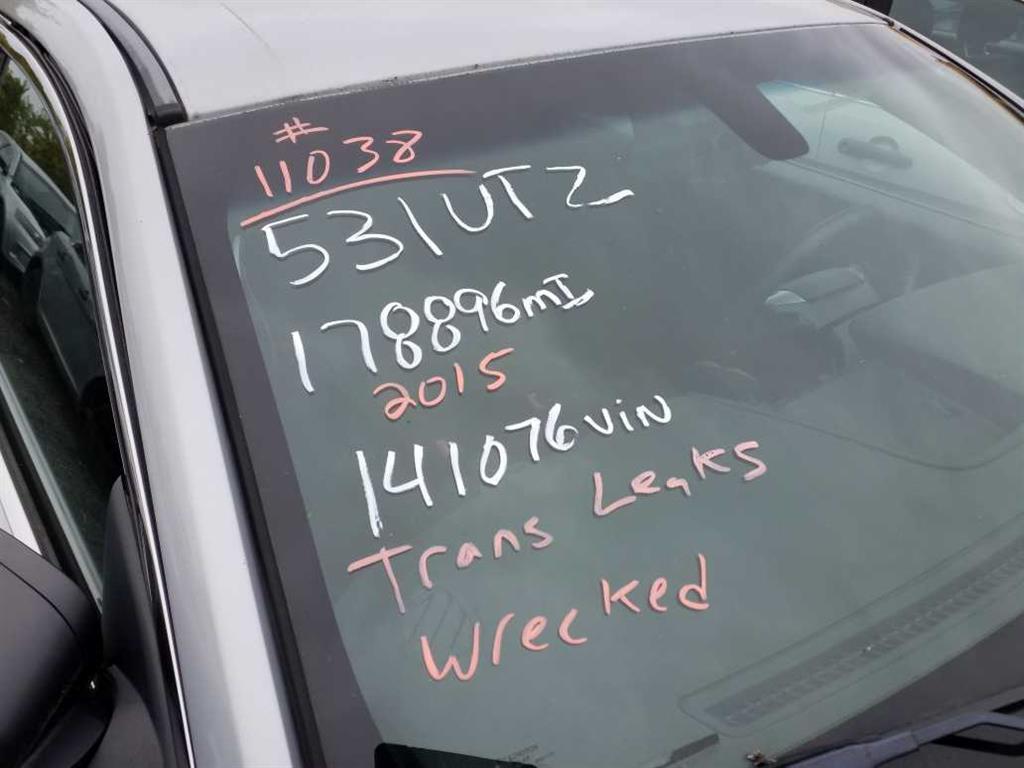 #
11038
531UTZ
178896mI
2015
141076 viN
Trans Leaks
Wrecked